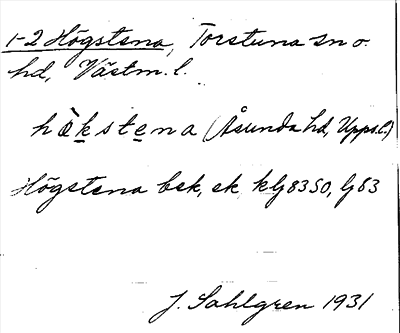 1-2 Högstena, Torstuna sn o.
hd, Västm. l.
hö̀kstena (Åsunda hd, Upps.l.)
Högstena bsk, ek klj 83 SO, lj 83
J. Sahlgren 1931